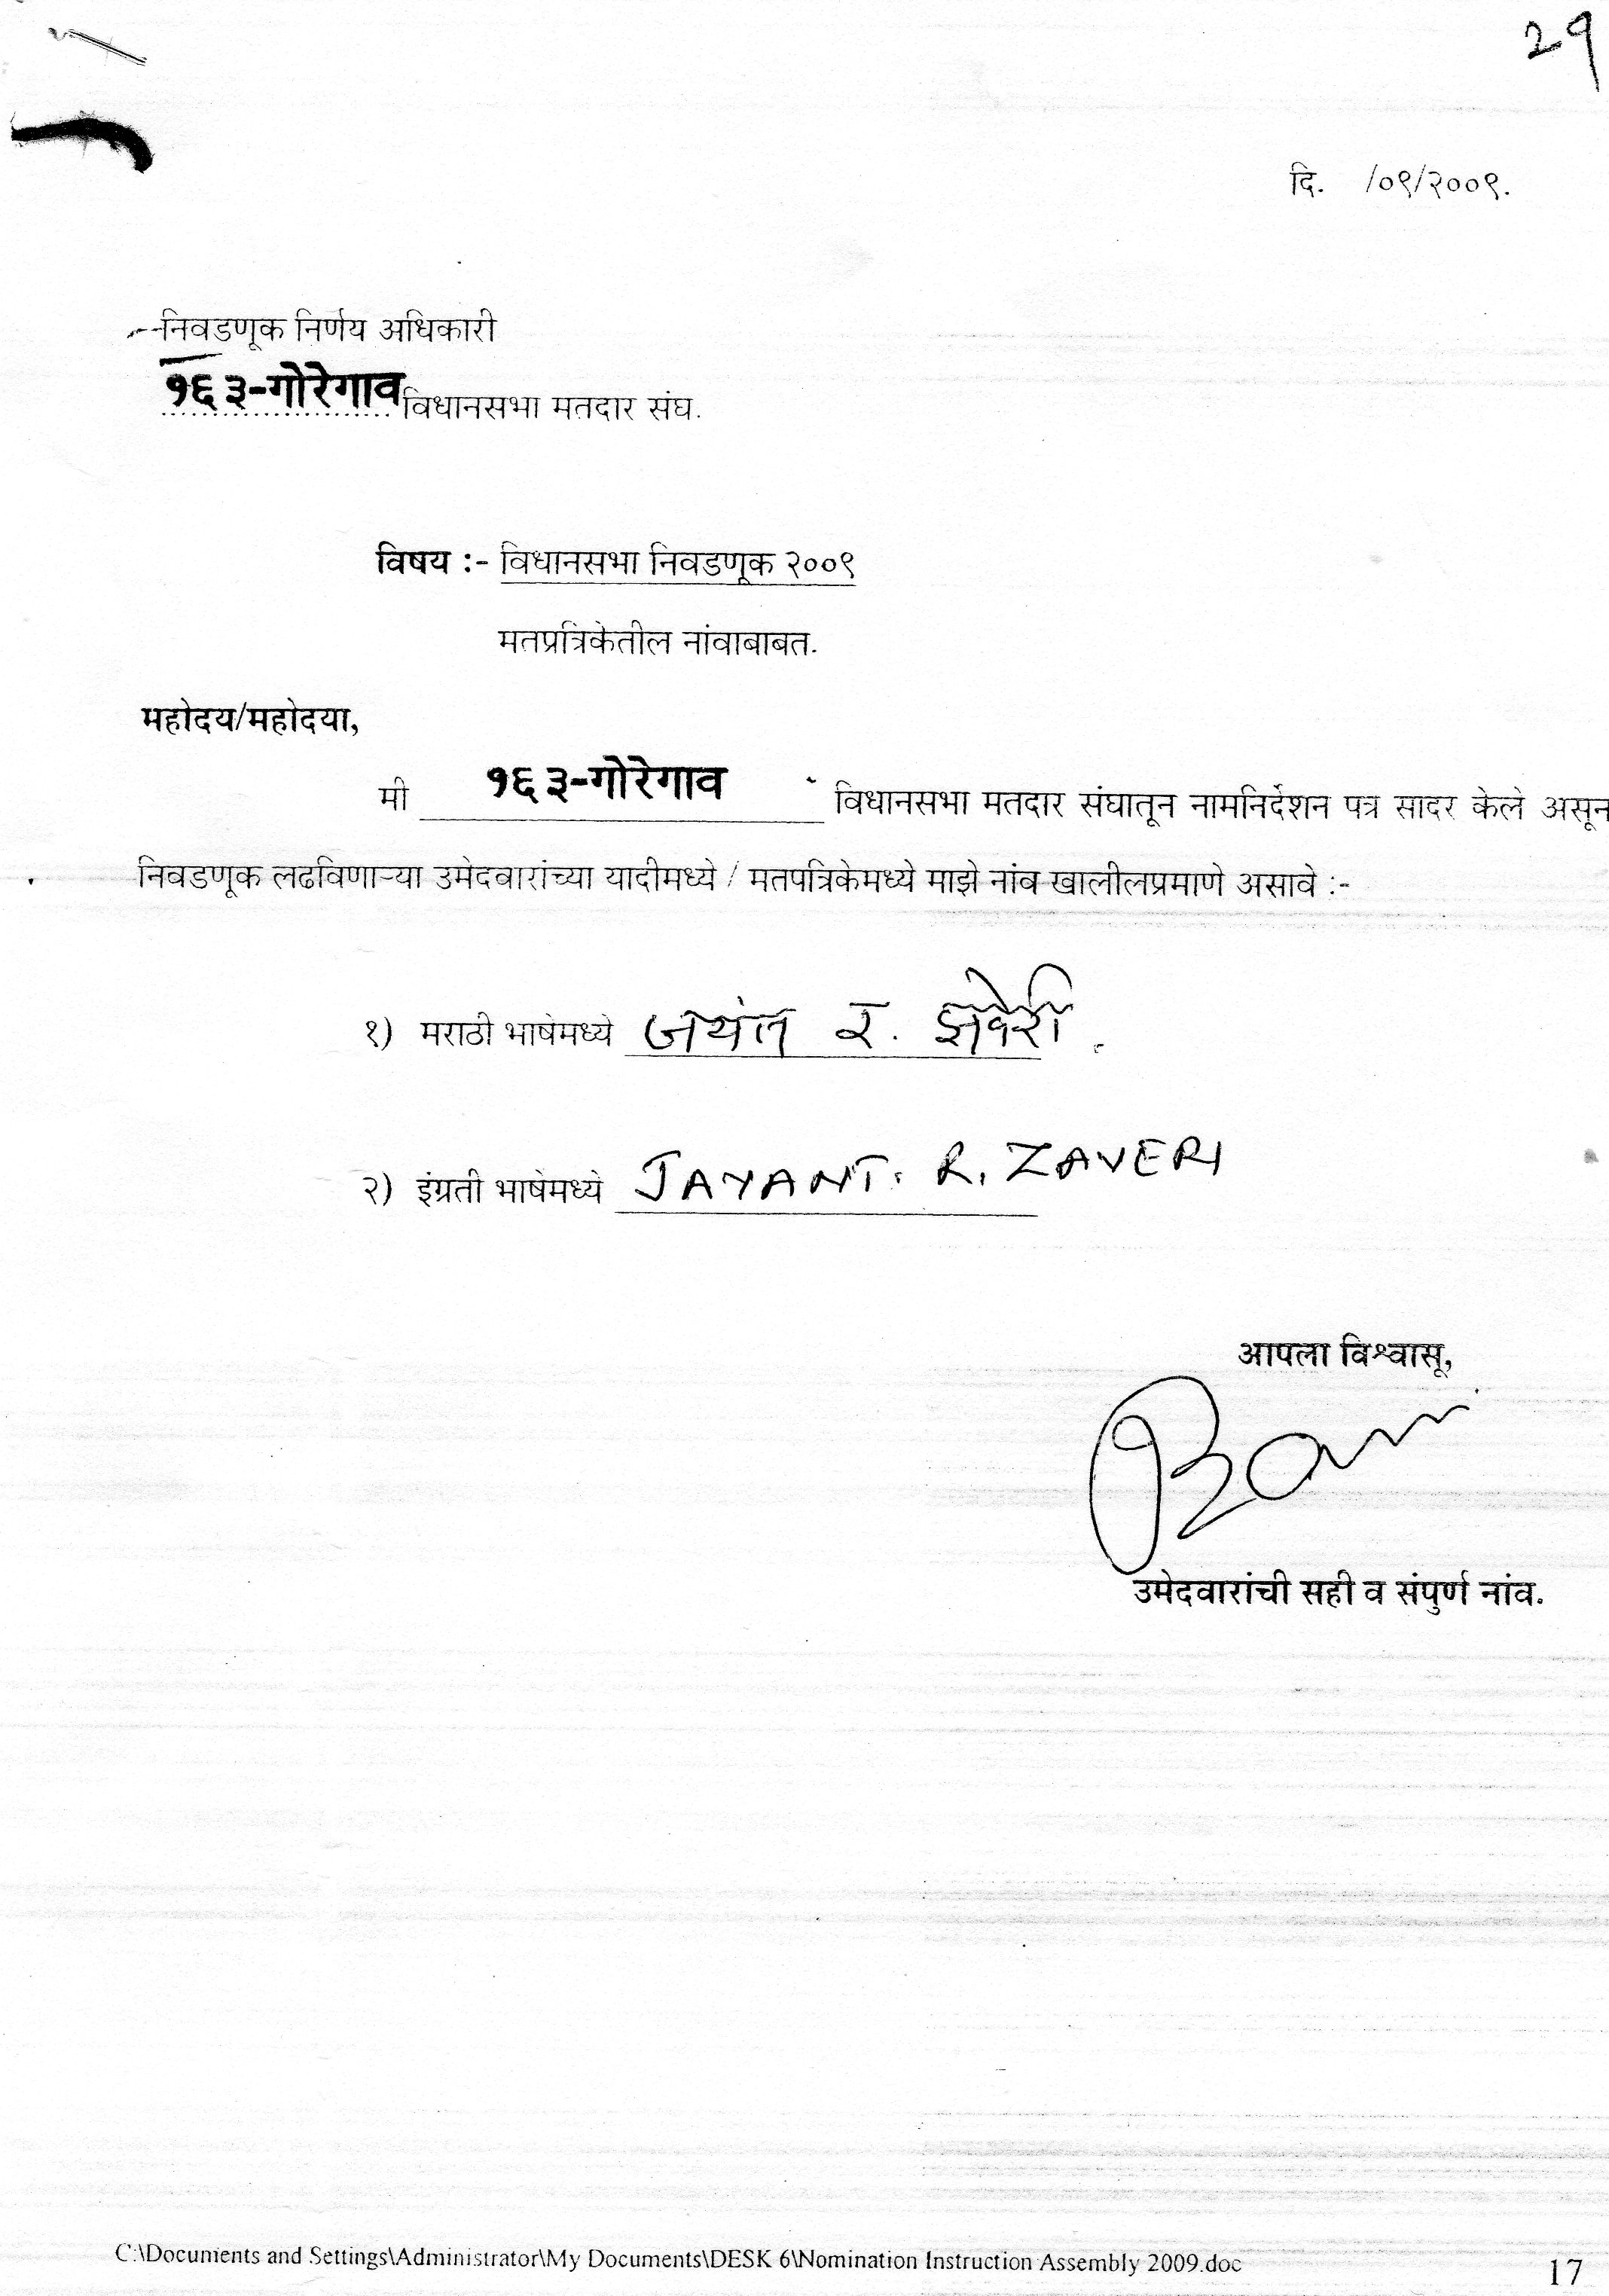 २१
दि. /०९/२००९.
निवडणूक निर्णय अधिकारी
१६३-गोरेगाव विधानसभा मतदार संघ.
विषय :- विधानसभा निवडणूक २००९
मतप्रत्रिकेतील नांवाबाबत.
महोदय/महोदया,
मी १६३-गोरेगाव विधानसभा मतदार संघातून नामनिर्देशन पत्र सादर केले असून
निवडणूक लढविणाऱ्या उमेदवारांच्या यादीमध्ये / मतपत्रिकेमध्ये माझे नांव खालीलप्रमाणे असावे :-
१) मराठी भाषेमध्ये जयंत र. झवेरी.
२) इंग्रती भाषेमध्ये JAYANT. R. ZAVERI
आपला विश्वासू,
उमेदवारांची सही व संपुर्ण नांव.
C:\Documents and Settings\Administrator\My Documents\DESK 6\Nomination Instruction Assembly 2009.doc 17